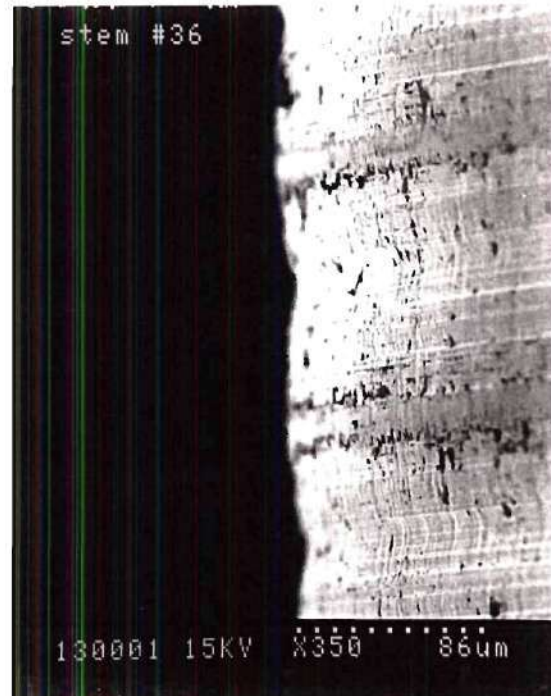 stem #36
130001 15KV X350 86um